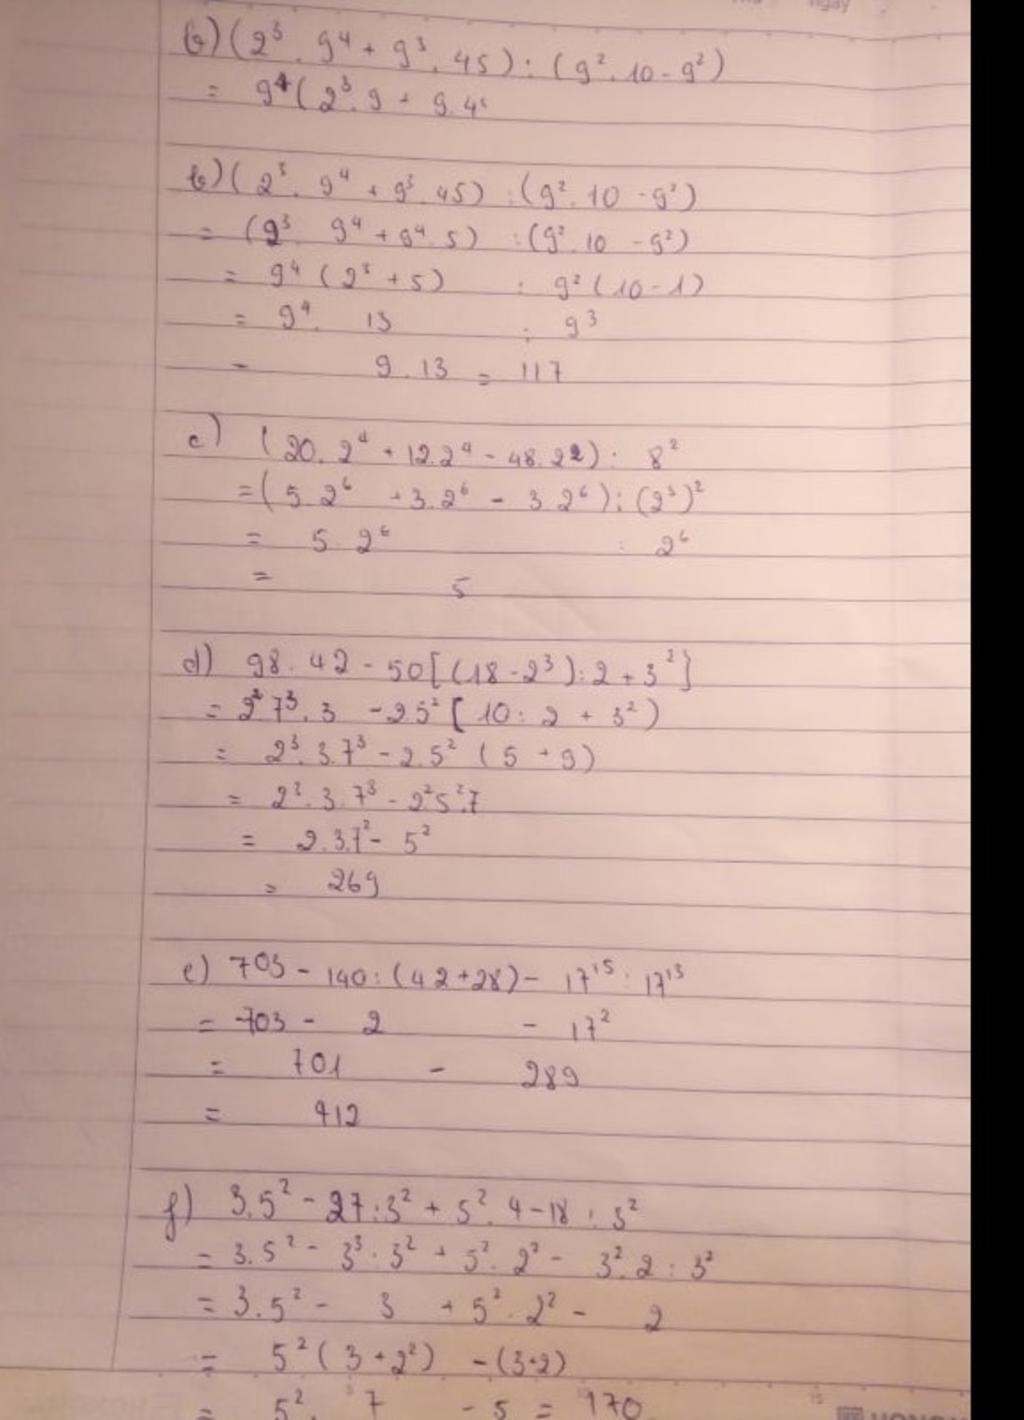 b) (2³. 9⁴ + 9³. 45) : (9². 10 - 9²)
= 9⁴ ( 2³. 9 + 9. 4
b) ( 2³. 9⁴ + 9³. 45) : (9². 10 - 9²)
= (2³. 9⁴ + 9⁴. 5) : (9². 10 - 9²)
= 9⁴ ( 2³ + 5) : 9² ( 10 - 1)
= 9⁴. 13 : 9³
= 9. 13 = 117
c) ( 20. 2⁴ + 12. 2⁴ - 48. 2²) : 8²
= ( 5. 2⁶ + 3. 2⁶ - 3. 2⁶) : (2³)²
= 5. 2⁶ : 2⁶
= 5
d) 98. 42 - 50 [ (18 - 2³) : 2 + 3² ]
= 2² 7³. 3 - 2 5² [ 10 : 2 + 3² )
= 2³. 3. 7³ - 2. 5² ( 5 + 9)
= 2². 3. 7³ - 2² 5². 7
= 2. 3. 7² - 5²
= 269
e) 703 - 140 : (42 + 28) - 17¹⁵ : 17¹³
= 703 - 2 - 17²
= 701 - 289
= 412
f) 3. 5² - 27 : 3² + 5². 4 - 18 : 3²
= 3. 5² - 3³ : 3² + 5². 2² - 3². 2 : 3²
= 3. 5² - 3 + 5². 2² - 2
= 5² ( 3 + 2²) - (3+2)
= 5². 7 - 5 = 170